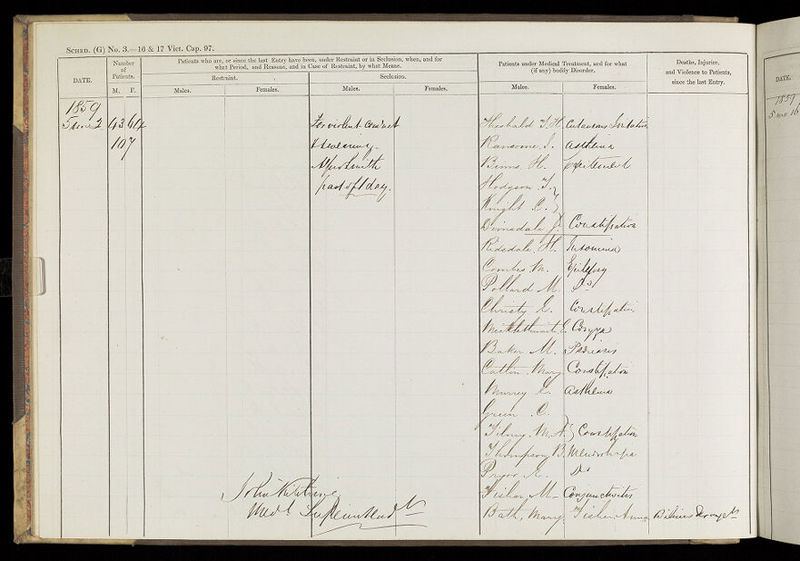 SCHED. (G) No. 3.—16 & 17 Vict. Cap. 97.
DATE.
Number of Patients.
M. F.
Patients who are, or since the last Entry have been, under Restraint or in Seclusion, when, and for what Period, and Reasons, and in Case of Restraint, by what Means.
Restraint.
Seclusion.
Males. Females. Males. Females.
Patients under Medical Treatment, and for what (if any) bodily Disorder.
Males. Females.
Deaths, Injuries, and Violence to Patients, since the last Entry.
1859
2 43 64
107
For violent conduct
& swearing.
part of 1 day.
Theobald T. H. Cutaneous Irritation
Ransome J. Asthma
Binns H. Excitement
Hodgson T.
Knight E.
Dimsdale J. Constipation
Ridsdale H. Insomnia
Combes M. Epilepsy
Pollard M. Do
Christy E. Constipation
E. Coryza
Baker M. Psoriasis
Catlin Mary Constipation
Murrey E. Asthenia
Green C.
Tilney M. A. Constipation
Thompson B.
Pryor Do
Fisher M. Conjunctivitis
Bath, Mary Fisher Anna
John Kitching
Medl Superintendt
DATE.
1859
16